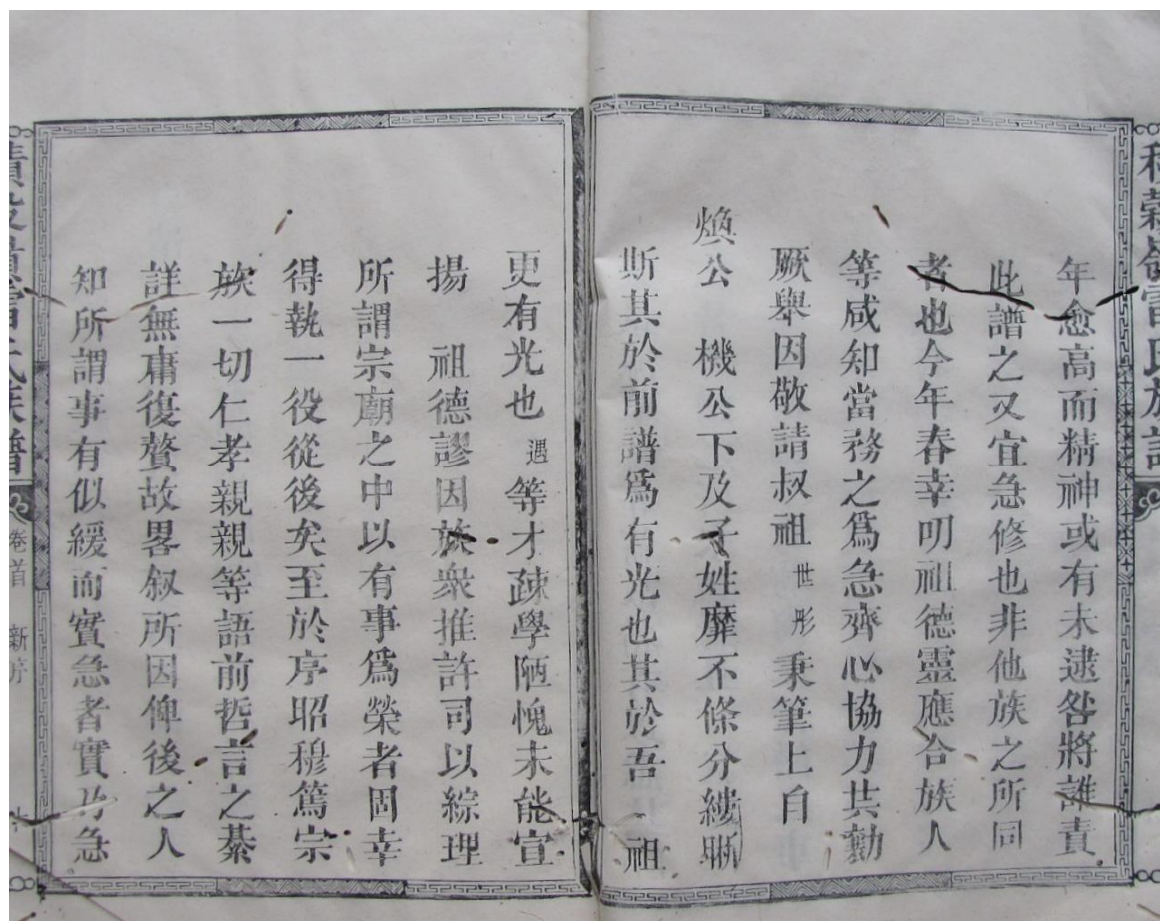 年愈高而精神或有未逮咎將誰責
此譜之又宜急修也非他族之所同
者也今年春幸叨祖德靈應合族人
等咸知當務之爲急齊心協力共勷
厥舉因敬請叔祖世彤秉筆上自
煥公 機公下及子姓靡不條分縷晰
斯其於前譜爲有光也其於吾 祖
更有光也遇等才疎學陋愧未能宣
揚 祖德謬因族衆推許司以綜理
所謂宗廟之中以有事爲榮者固幸
得執一役從後矣至於序昭穆篤宗
族一切仁孝親親等語前哲言之綦
詳無庸復贅故畧叙所因俾後之人
知所謂事有似緩而實急者實乃急
氏族譜
卷首 新序